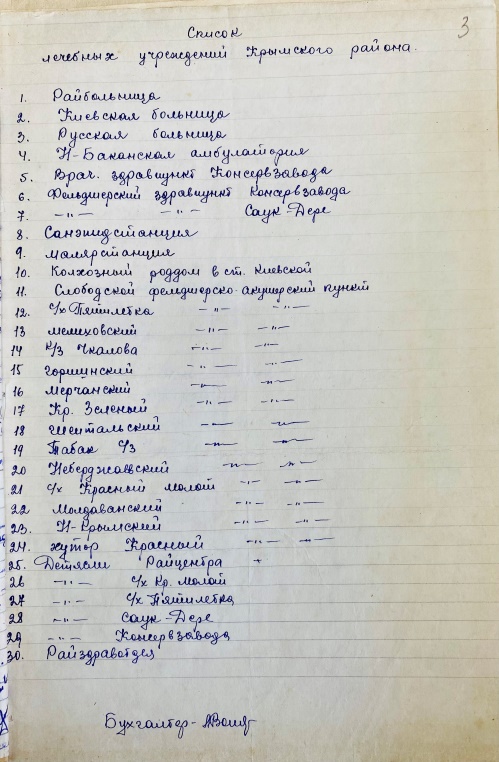 3
Список
лечебных учреждений Крымского района.
1. Райбольница
2. Киевская больница
3. Русская больница
4. Н-Баканская амбулатория
5. Врач. здравпункт Консервзавода
6. Фельдшерский здравпункт Консервзавода
7 -"- -"- Саук-Дере
8. Санэпидстанция
9. малярстанция
10. Колхозный роддом в ст. Киевской
11. Слободской фельдшерско-акушерский пункт
12. с/х Пятилетка -"- -"-
13 мелиховский -"- -"-
14 к/з Чкалова -"- -"-
15 горщинский -"- -"-
16 мерчанский -"- -"-
17 Кр. Зеленый -"- -"-
18 шептальский -"- -"-
19 Табак с/з -"- -"-
20 Неберджаевский -"- -"-
21 с/х Красный молот -"- -"-
22 Молдаванский -"- -"-
23. Н-Крымский -"- -"-
24. хутор Красный -"- -"-
25. Детясли Райцентра +
26 -"- с/х Кр. молот
27 -"- с/х Пятилетка
28 -"- Саук-Дере
29 -"- Консервзавода
30. Райздравотдел
Бухгалтер-